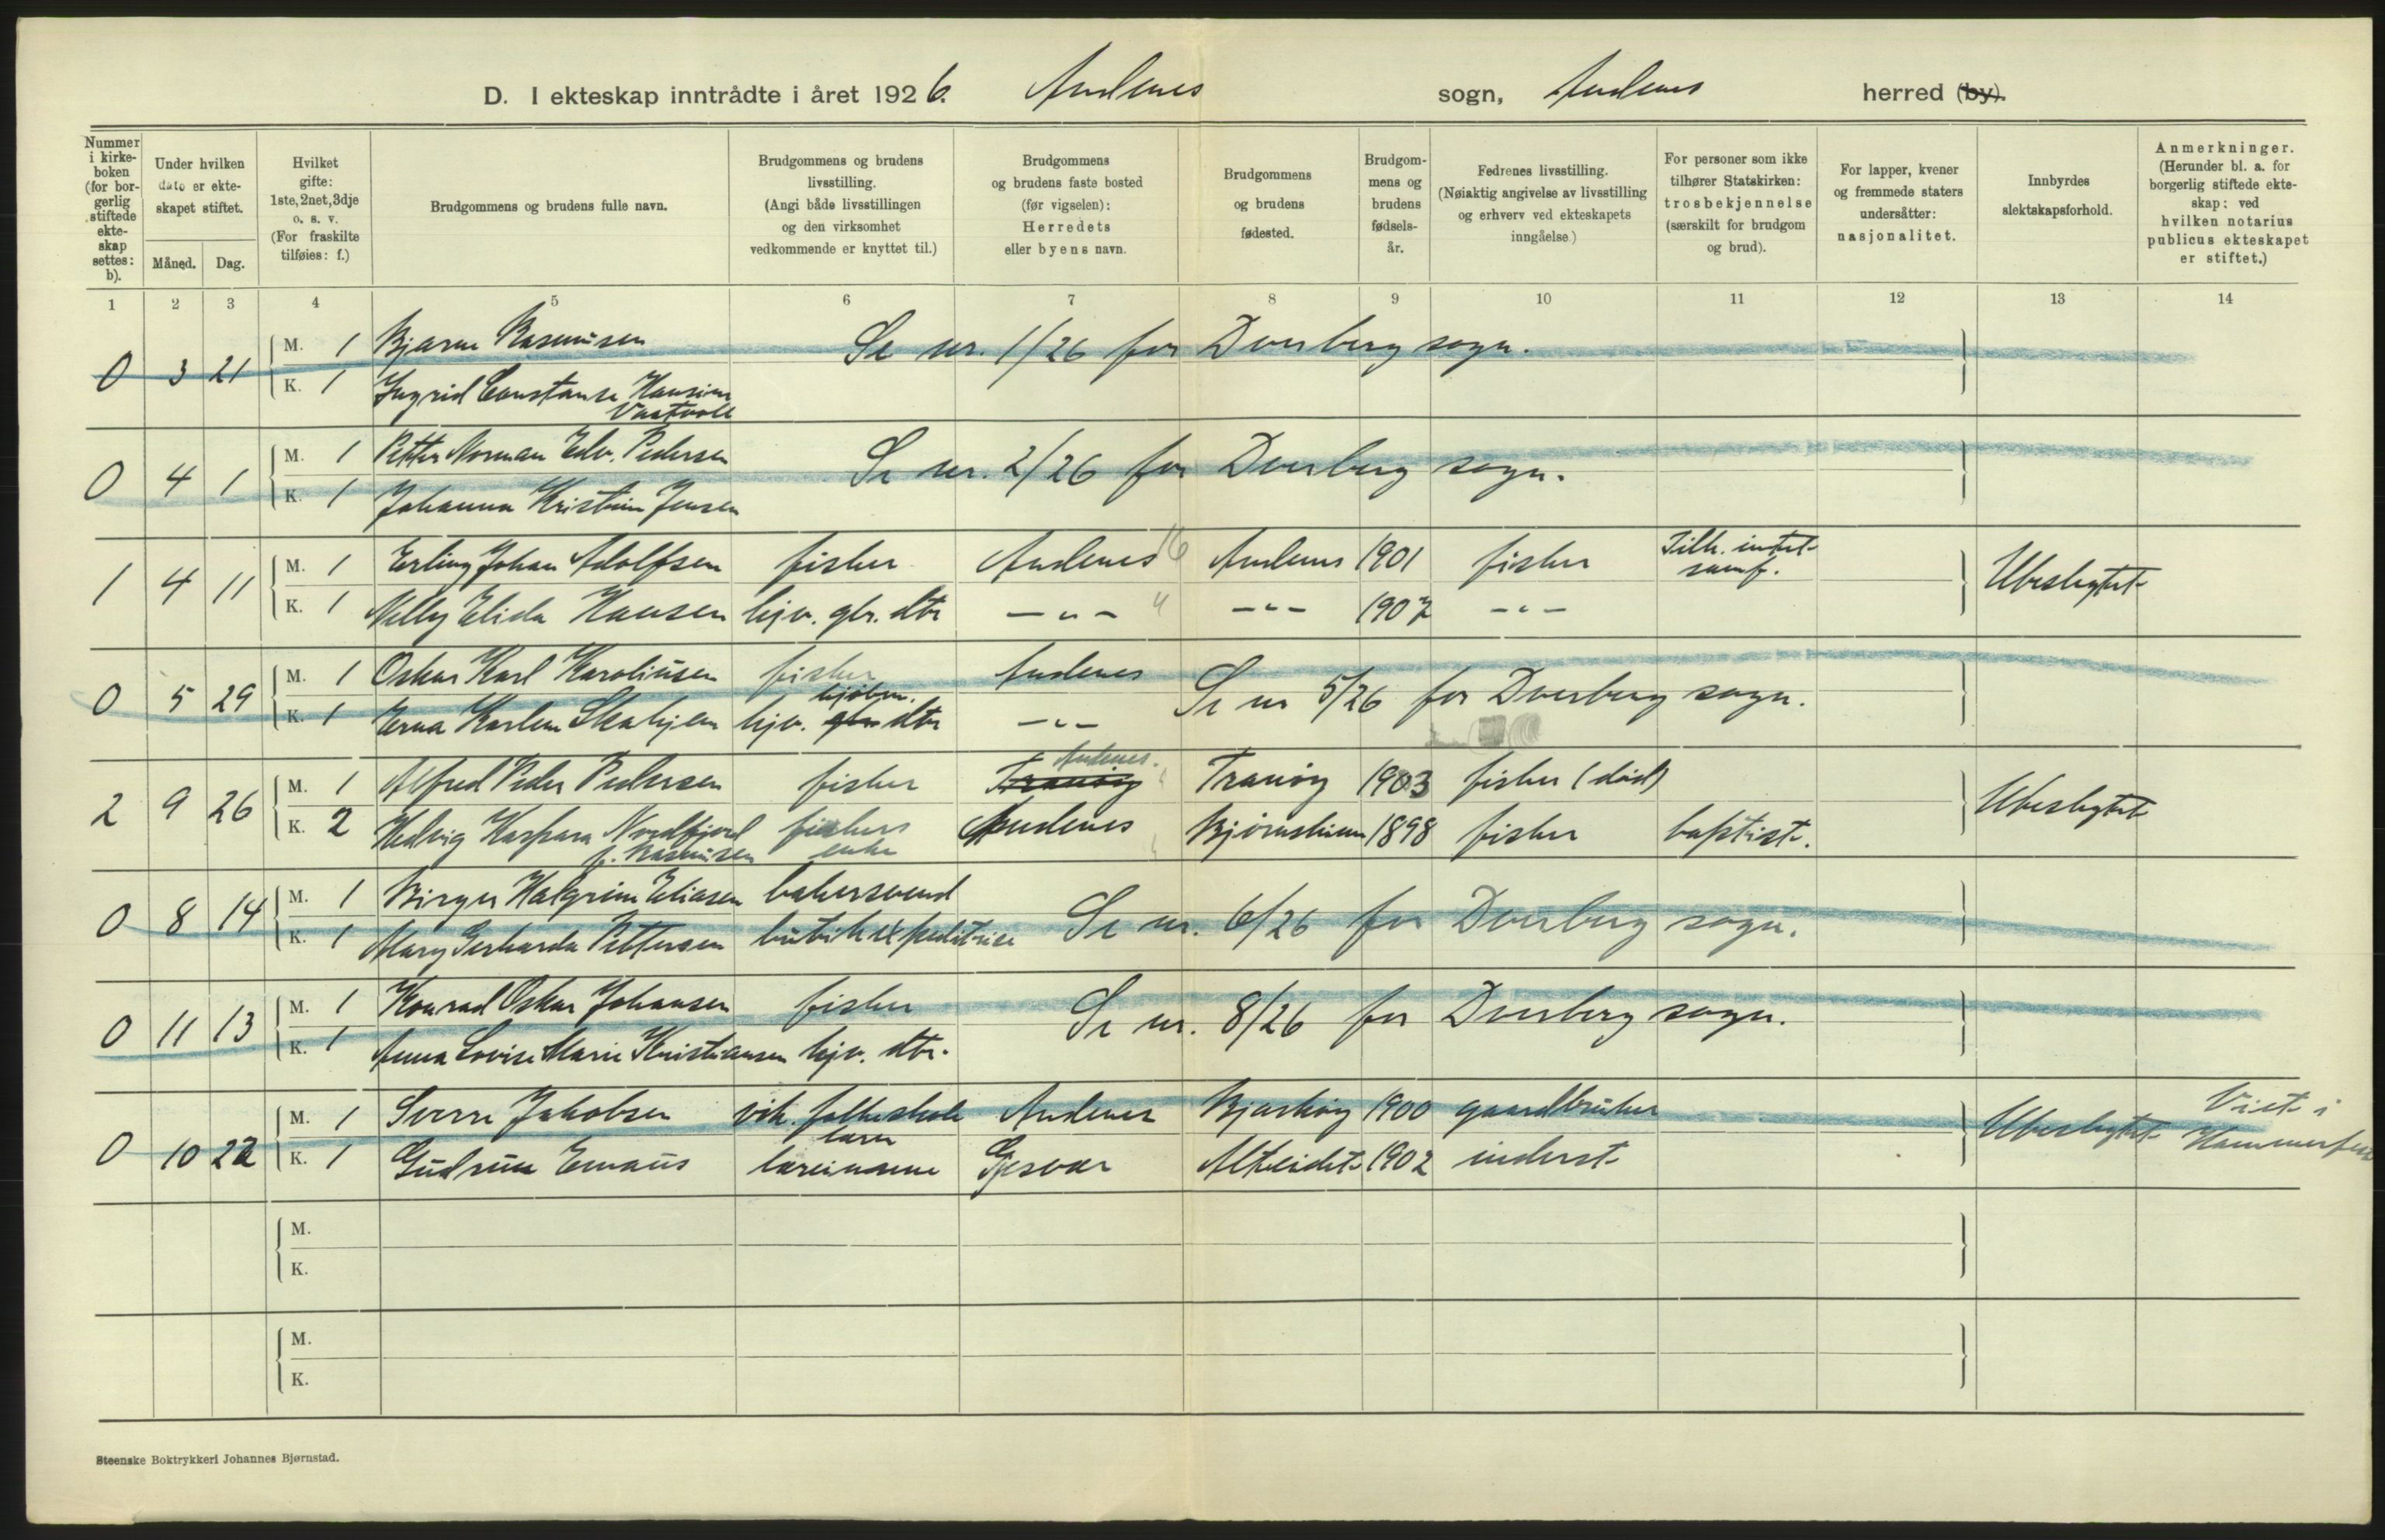 D. I ekteskap inntrådte i året 1926. Andenes sogn, Andenes herred (by).
Nummer i kirkeboken (for borgerlig stiftede ekteskap settes: b).
Under hvilken dato er ekteskapet stiftet.
Måned. Dag.
Hvilket gifte: 1ste, 2net, 3dje o. s. v. (For fraskilte tilføies: f.)
Brudgommens og brudens fulle navn.
Brudgommens og brudens livsstilling. (Angi både livsstillingen og den virksomhet vedkommende er knyttet til.)
Brudgommens og brudens faste bosted (før vigselen): Herredets eller byens navn.
Brudgommens og brudens fødested.
Brudgommens og brudens fødselsår.
Fedrenes livsstilling. (Nøiaktig angivelse av livsstilling og erhverv ved ekteskapets inngåelse.)
For personer som ikke tilhører Statskirken: trosbekjennelse (særskilt for brudgom og brud).
For lapper, kvener og fremmede staters undersåtter: nasjonalitet.
Innbyrdes slektskapsforhold.
Anmerkninger. (Herunder bl. a. for borgerlig stiftede ekteskap: ved hvilken notarius publicus ekteskapet er stiftet.)
1 2 3 4 5 6 7 8 9 10 11 12 13 14
0 3 21 M. 1 Bjarne Rasmusen Se nr. 1/26 for Dverberg sogn.
K. 1 Ingrid Constanse Hansine Vaatvoll
0 4 1 M. 1 Petter Norman Edv. Pedersen Se nr. 2/26 for Dverberg sogn.
K. 1 Johanna Kristine Jensen
1 4 11 M. 1 Erling Johan Adolfsen fisker Andenes 16 Andenes 1901 fisker Tilh. intet samf. Ubeslegtet
K. 1 Nelly Elida Hansen hjv. gbr. dtr — " — " — " — 1907 — " —
0 5 29 M. 1 Oskar Karl Karoliusen fisker Andenes Se nr 5/26 for Dverberg sogn.
K. 1 Erna Karlene Skahjem hjv. gbr dtr — " —
2 9 26 M. 1 Alfred Peder Pedersen fisker Tranöy Andenes. Tranöy 1903 fisker (död) Ubeslegtet
K. 2 Hedvig Kaspara Nordfjord f. Rasmusen fiskers enke Andenes Bjørnskinn 1898 fisker baptist.
0 8 14 M. 1 Birger Halgrim Eliasen bakersvend Se nr. 6/26 for Dverberg sogn.
K. 1 Mary Gerharda Pettersen butikexpeditrise
0 11 13 M. 1 Konrad Oskar Johansen fisker Se nr. 8/26 for Dverberg sogn.
K. 1 Anna Lovise Marie Kristiansen hjv. dtr.
0 10 22 M. 1 Sverre Jakobsen vik. folkeskole lærer Andenes Bjarköy 1900 gaardbruker Ubeslegtet Viet i Hammerfest
K. 1 Gudrun Emaus lærerinne Gjesvær Alteidet 1902 inderst
M.
K.
M.
K.
Steenske Boktrykkeri Johannes Bjørnstad.